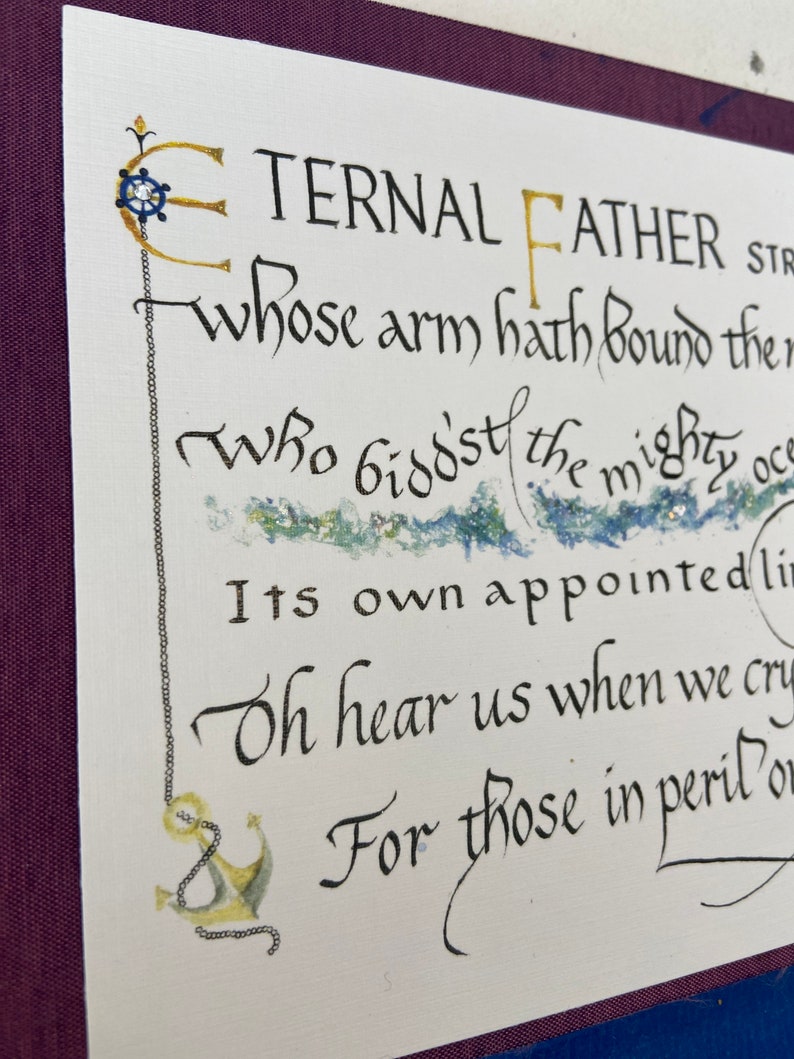 ETERNAL FATHER STR
whose arm hath bound the
who bidd'st the mighty oce
Its own appointed li
Oh hear us when we cry
For those in peril on